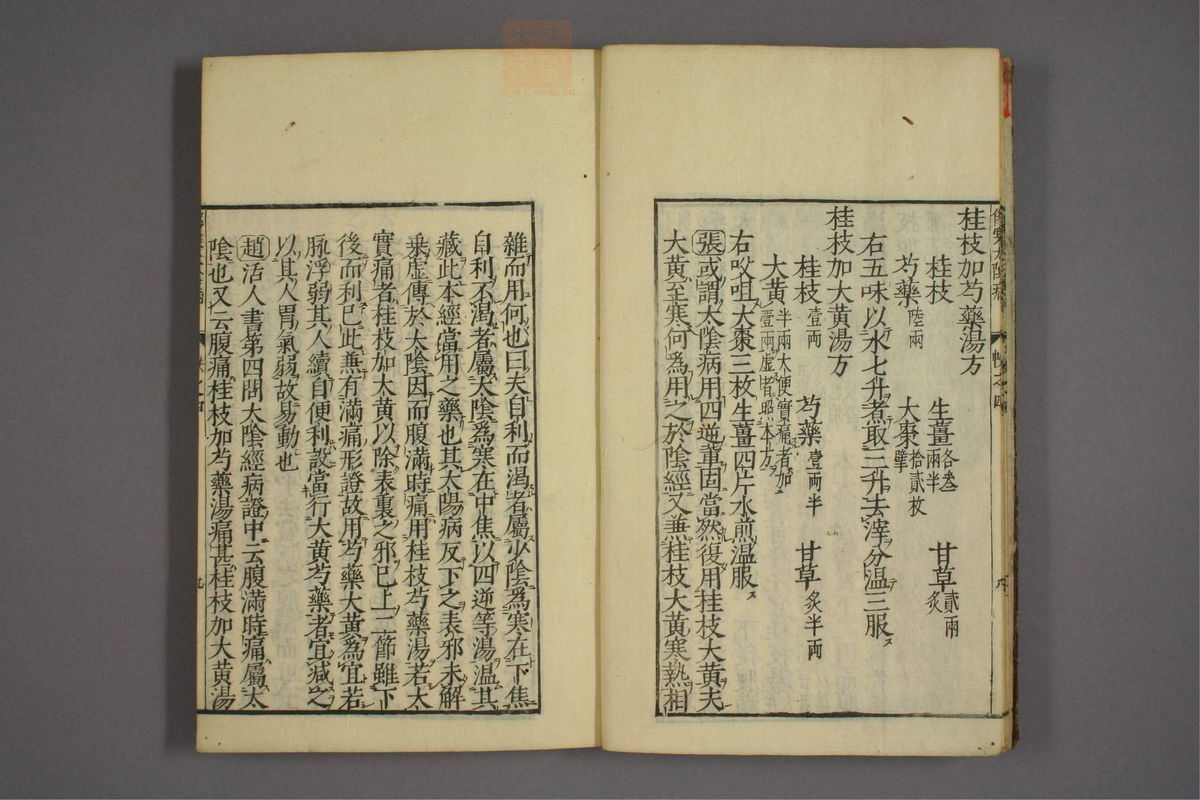 桂枝加芍藥湯方
桂枝 生薑各叁兩半 甘草貳兩炙
芍藥陸兩 大棗拾貳枚擘
右五味以水七升煮取三升去滓分溫三服
桂枝加大黃湯方
桂枝壹兩 芍藥壹兩半 甘草炙半兩
大黃半兩大便實痛者加壹兩虛者照本方
右㕮咀大棗三枚生薑四片水煎溫服
張或謂太陰病用四逆輩固當然復用桂枝大黃夫
大黃至寒何爲用之於陰經又兼桂枝大黃寒熱相
雜而用何也曰夫自利而渴者屬少陰爲寒在下焦
自利不渴者屬太陰爲寒在中焦以四逆等湯溫其
藏此本經當用之藥也其太陽病反下之表邪未解
乗虛傳於太陰因而腹滿時痛用桂枝芍藥湯若太
實痛者桂枝加大黃以除表裏之邪巳上二節雖下
後而利巳此兼有滿痛形證故用芍藥大黃爲宜若
脉浮弱其人續自便利設當行大黃芍藥者宜減之
以其人胃氣弱故易動也
趙活人書第四問大陰經病證中云腹滿時痛屬太
陰也又云腹痛桂枝加芍藥湯痛甚桂枝加大黃湯